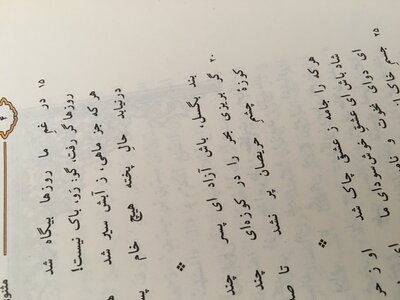 ۴ مثنوی
۱۵ در غمِ ما روزها بیگاه شد
روزها گر رفت، گو: رَو، باک نیست!
هر که جز ماهی، ز آبش سیر شد
درنیابد حالِ پخته هیچ خام پس
بند بگسل، باش آزاد ای پسر چند
۲۰ گر بریزی بحر را در کوزه‌ای چند
کوزهٔ چشمِ حریصان پر نشد تا
هرکه را جامه ز عشقی چاک شد او ز
شاد باش ای عشقِ خوش‌سودای ما ای
ای دوای نخوت و
۲۵ جسمِ خاک